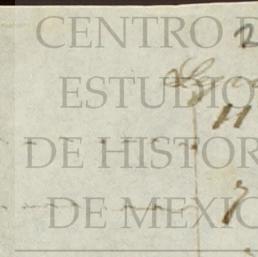 CENTRO D
2
ESTUDIO
11
DE HISTOR
DE MEXIC
7